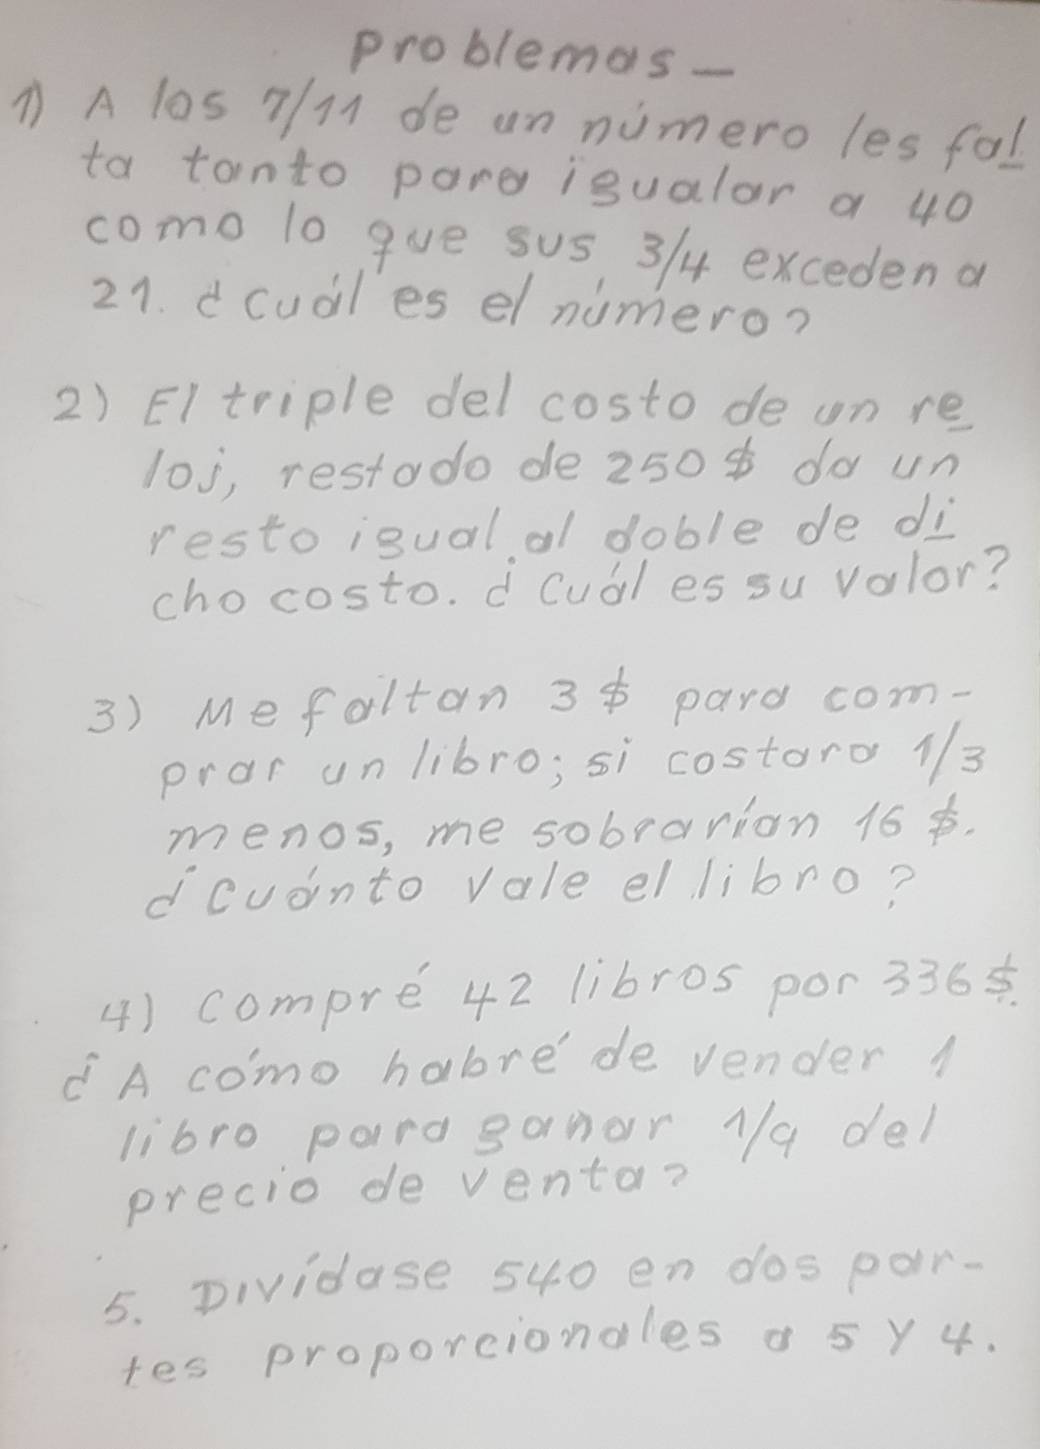 Problemas -
1) A los 7/11 de un número les fal
ta tanto para igualar a 40
como lo que sus 3/4 exceden a
21. ¿cuál es el número?
2) El triple del costo de un re
loj, restado de 250$ da un
resto igual al doble de di
cho costo. ¿Cuál es su valor?
3) Me faltan 3$ para com-
prar un libro; si costara 1/3
menos, me sobrarían 16$.
¿cuánto vale el libro?
4) compré 42 libros por 336$.
¿A cómo habré de vender 1
libro para ganar 1/9 del
precio de venta?
5. Divídase 540 en dos par-
tes proporcionales a 5 y 4.